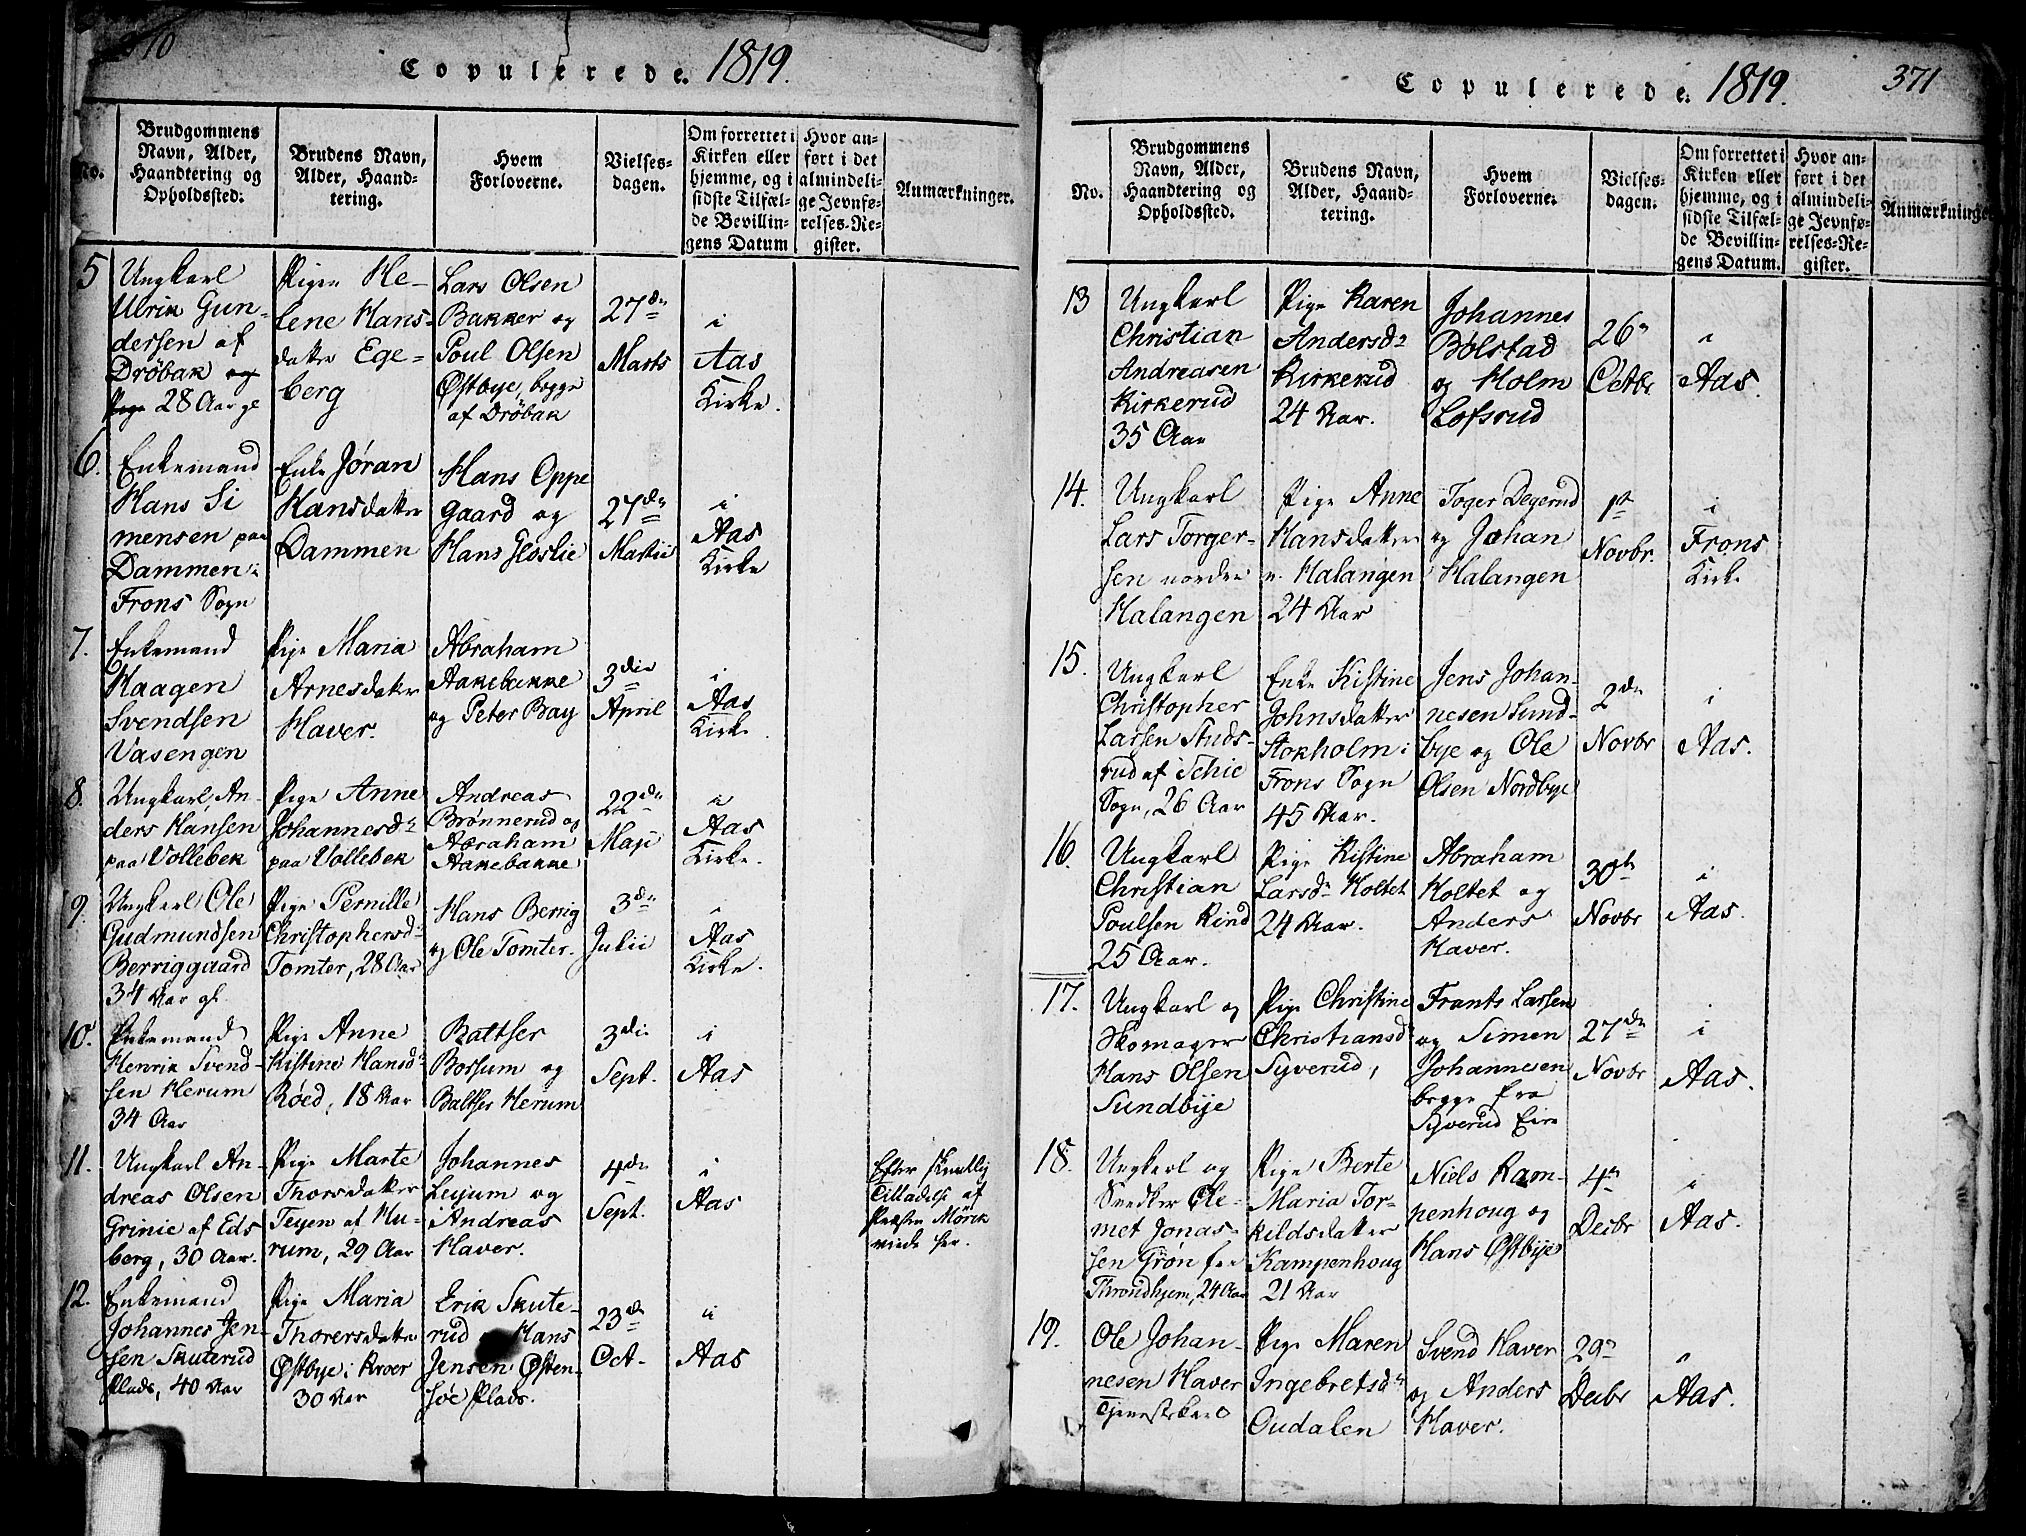 370
Copulerede. 1819.
No.
Brudgommens
Navn, Alder,
Haandtering og
Opholdssted.
Brudens Navn,
Alder, Haand-
tering.
Hvem
Forloverne.
Vielses-
dagen.
Om forrettet i
Kirken eller
hjemme, og i
sidste Tilfæl-
de Bevillin-
gens Datum
Hvor an-
ført i det
almindeli-
ge Jevnfø-
relses-Re-
gister.
Anmærkninger.
5
Ungkarl
Ulrik Gun-
dersen af
Drøbak og
Pige 28 Aar gl
Pigen He-
lene Hans-
datter Ege-
berg
Lars Olsen
Bakker og
Poul Olsen
Østbye, begge
af Drøbak
27de
Marts
i
Aas
Kirke.
6.
Enkemand
Hans Si
mensen paa
Dammen i
Frons Sogn
Enke Jøran
Hansdatter
Dammen
Hans Oppe
gaard og
Hans Gloslie
27de
Martii
i
Aas
Kirke
7.
Enkemand
Haagen
Svendsen
Vasengen
Pige Maria
Arnesdatter
Haver.
Abraham
Aakebakke
og Peter Bay
3die
April
i
Aas
Kirke
8.
Ungkarl, An-
ders Hansen
paa Vollebek
Pige Anne
Johannesdr
paa Vollebek
Andreas
Brønnerud og
Abraham
Aakebakke
22de
Maji
i
Aas
Kirke.
9.
Ungkarl Ole
Gudmundsen
Berriggaard
34 Aar gl.
Pige Pernille
Christophersdr
Tomter, 28 Aar
Hans Berrig
og Ole Tomter.
3de
Julii
i
Aas
Kirke.
10.
Enkemand
Henrik Svend-
sen Herum
34 Aar
Pige Anne
Kistine Hansdr
Røed, 18 Aar
Baltser
Bossum og
Baltser Herum
3die
Sept.
i
Aas
11.
Ungkarl An-
dreas Olsen
Grinie af Eds
berg, 30 Aar.
Pige Marte
Thorsdatter
Teyen af Hu-
rum, 29 Aar
Johannes
Leijum og
Andreas
Haver.
4de
Sept.
i
Aas
Efter skriftlig
Tilladelse af
Præsten Mørk
viede her.
12.
Enkemand
Johannes Jen-
sen Skuterud
Plads, 40 Aar
Pige Maria
Thorersdatter
Østbye i Kroer
30 Aar
Erik Skute-
rud Hans
Jensen Østen-
søe Plads.
23de
Oct.
i
Aas
Copulerede. 1819. 371
No.
Brudgommens
Navn, Alder,
Haandtering og
Opholdssted.
Brudens Navn,
Alder, Haand-
tering.
Hvem
Forloverne.
Vielses-
dagen.
Om forrettet i
Kirken eller
hjemme, og i
sidste Tilfæl-
de Bevillin-
gens Datum.
Hvor an-
ført i det
almindeli-
ge Jevnfø-
relses-Re-
gister.
Anmærkninge
13
Ungkarl
Christian
Andreasen
Kirkerud
35 Aar
Pige Karen
Andersdr
Kirkerud
24 Aar.
Johannes
Bølstad
og Holm
Lofsrud
26
Octbr
i
Aas.
14.
Ungkarl
Lars Torger-
sen nordre
Halangen
Pige Anne
Hansdatter
n. Halangen
24 Aar
Toger Degerud
og Johan
Halangen
1st
Novbr.
i
Frons
Kirke
15.
Ungkarl
Christopher
Larsen Studs-
rud af Schie
Sogn, 26 Aar
Enke Kistine
Johnsdatter
Stokholm i
Frons Sogn
45 Aar.
Jens Johan-
nesen Sund-
bye og Ole
Olsen Nordbye
2de
Novbr
i
Aas.
16.
Ungkarl
Christian
Poulsen Rind
25 Aar.
Pige Kistine
Larsdr Holtet
24 Aar.
Abraham
Holtet og
Anders
Haver.
30te
Novbr
i
Aas.
17.
Ungkarl og
Skomager
Hans Olsen
Sundbije
Pige Christine
Christiansd
Syverud,
Frants Larsen
og Simen
Johannesen
begge fra
Syverud Eie
27de
Novbr
i
Aas.
18.
Ungkarl og
Snedker Cle-
met Jonas-
sen Grøn fra
Throndhjem, 24 Aar
Pige Berte
Maria Tor-
kildsdatter
Kampenhoug
21 Aar
Niels Kam-
penhoug og
Hans Østbije
4de
Decbr
i
Aas.
19.
Ole Johan-
nesen Haver
Tjenestekarl
Pige Maren
Ingebretsdr
Oudalen
Svend Haver
og Anders
Haver.
29
Decbr
i
Aas.